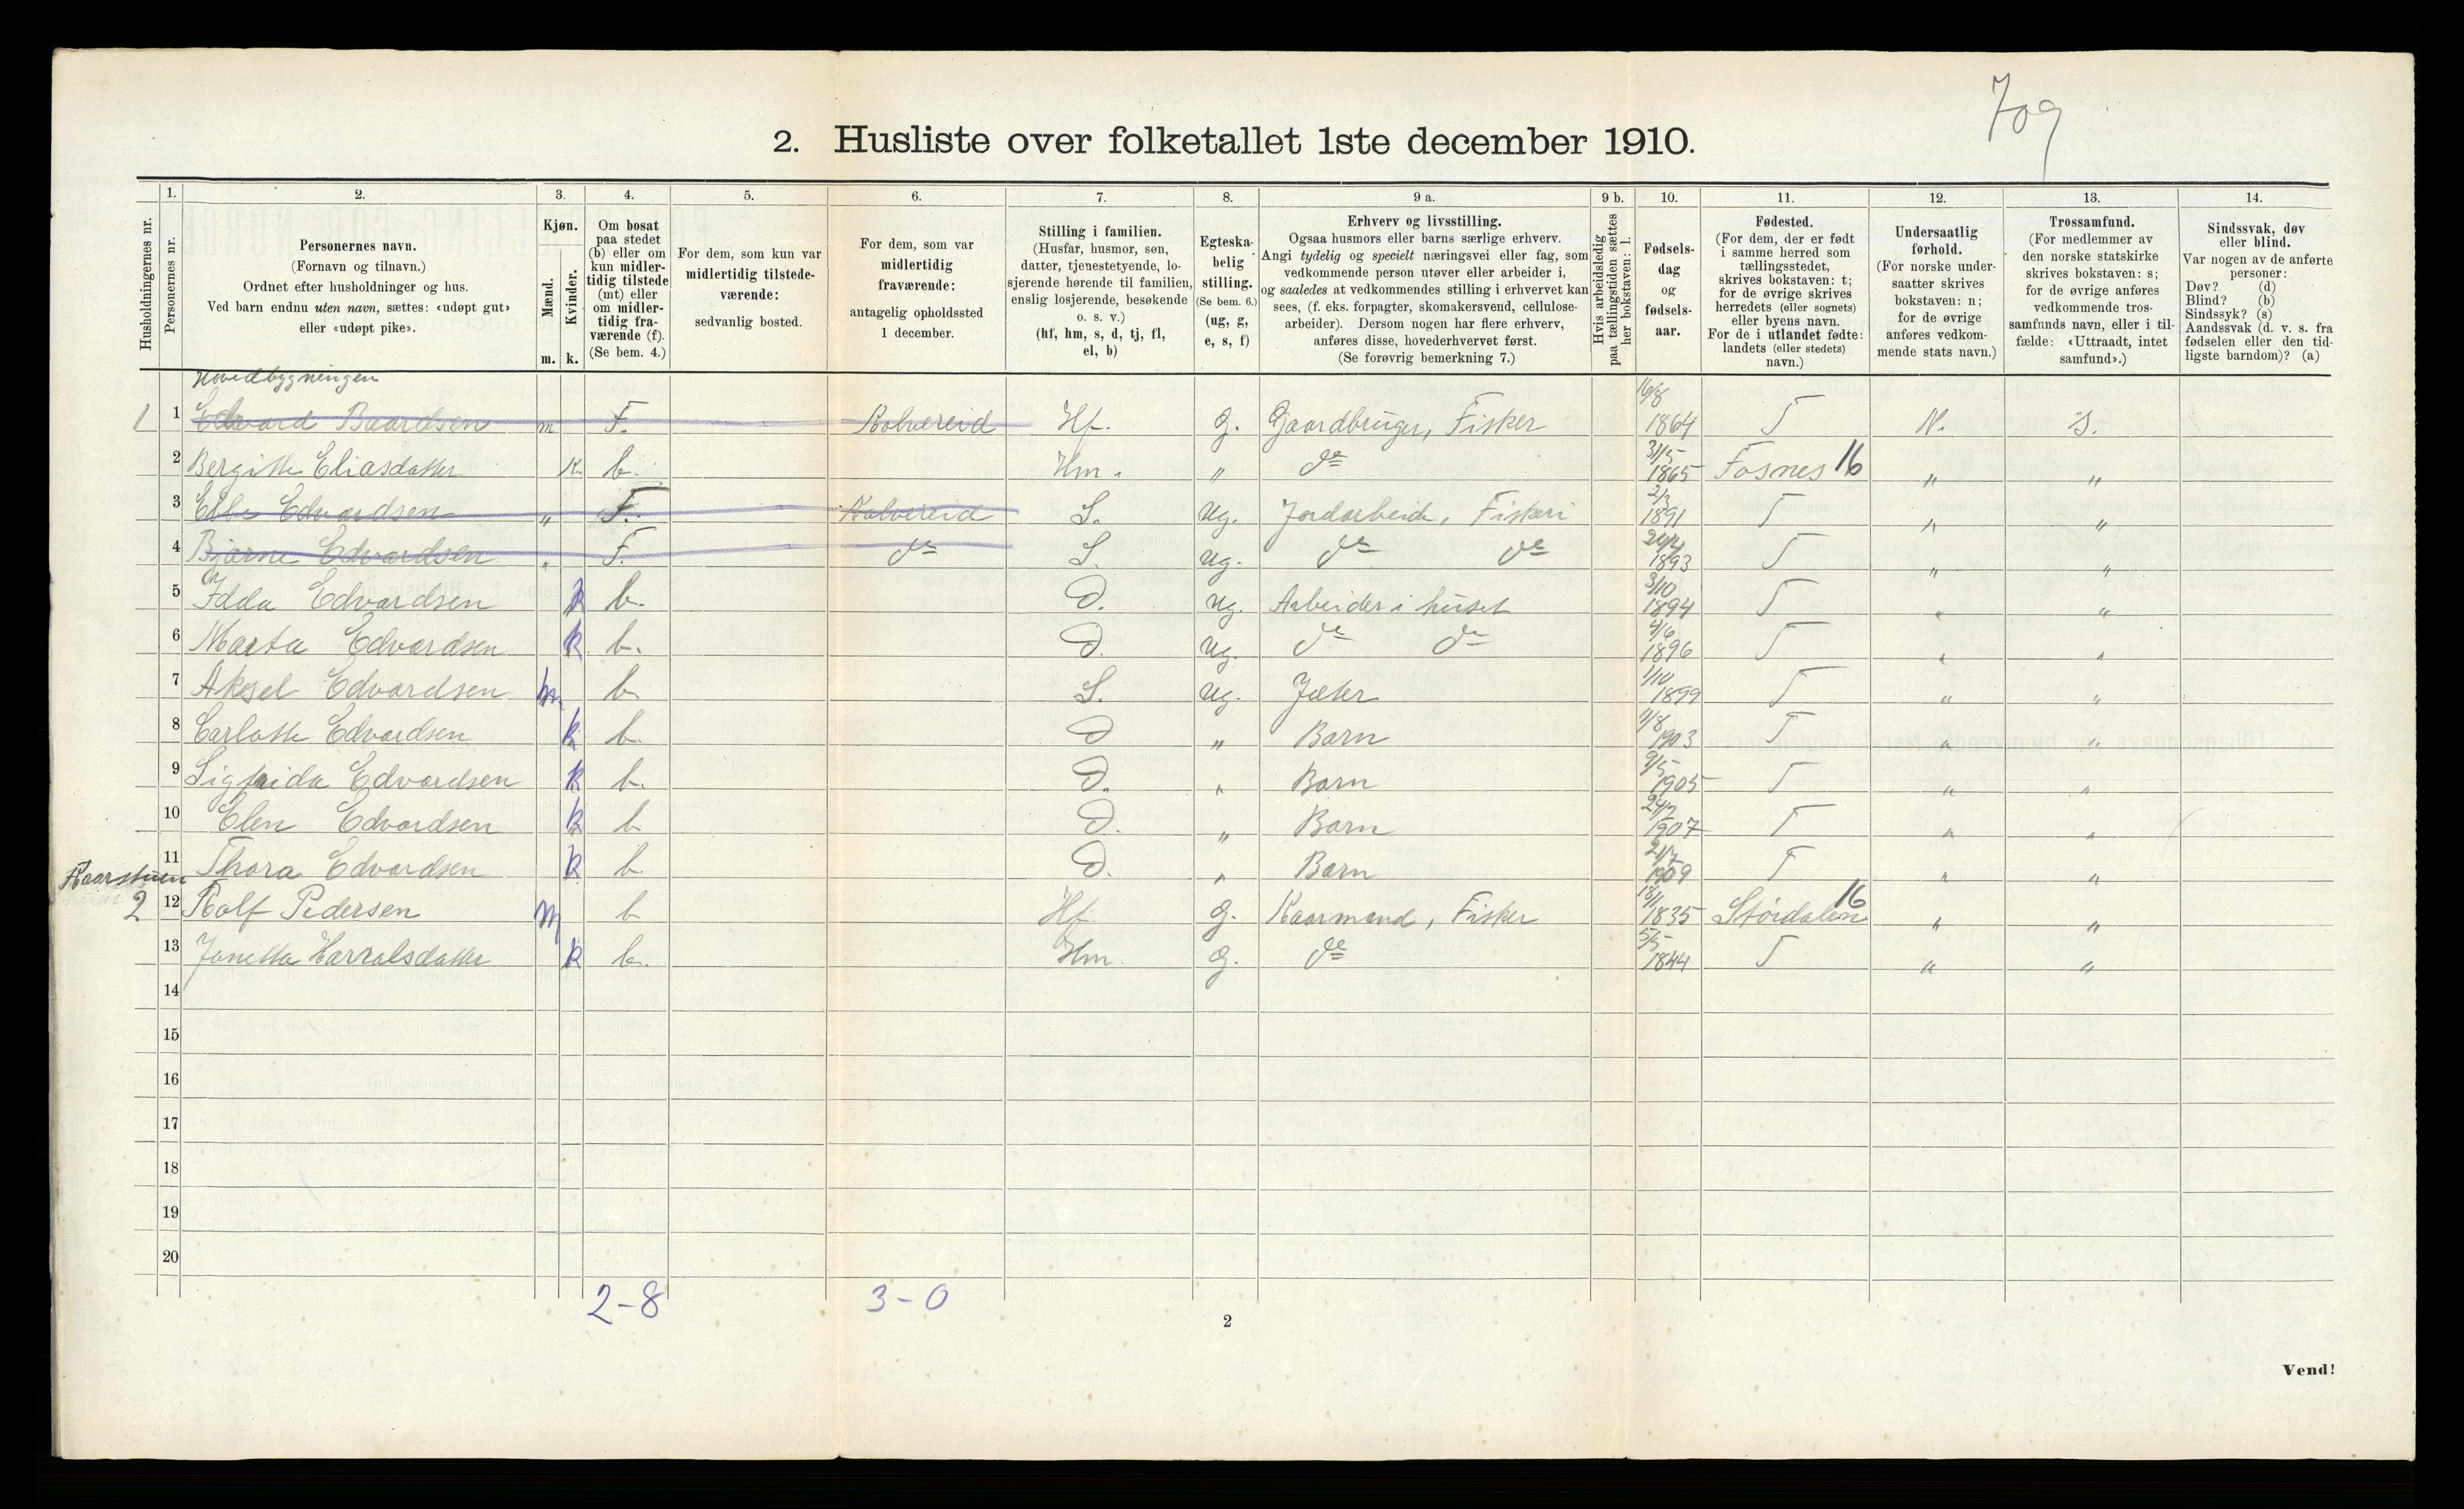 709
2. Husliste over folketallet 1ste december 1910.
Husholdningernes nr.
1. Personernes nr.
2. Personernes navn. (Fornavn og tilnavn.) Ordnet efter husholdninger og hus. Ved barn endnu uten navn, sættes: «udøpt gut» eller «udøpt pike».
3. Kjøn. Mænd. m. Kvinder. k.
4. Om bosat paa stedet (b) eller om kun midlertidig tilstede (mt) eller om midlertidig fraværende (f). (Se bem. 4.)
5. For dem, som kun var midlertidig tilstedeværende: sedvanlig bosted.
6. For dem, som var midlertidig fraværende: antagelig opholdssted 1 december.
7. Stilling i familien. (Husfar, husmor, søn, datter, tjenestetyende, losjerende hørende til familien, enslig losjerende, besøkende o. s. v.) (hf, hm, s, d, tj, fl, el, b)
8. Egteskabelig stilling. (Se bem. 6.) (ug, g, e, s, f)
9 a. Erhverv og livsstilling. Ogsaa husmors eller barns særlige erhverv. Angi tydelig og specielt næringsvei eller fag, som vedkommende person utøver eller arbeider i, og saaledes at vedkommendes stilling i erhvervet kan sees, (f. eks. forpagter, skomakersvend, cellulosearbeider). Dersom nogen har flere erhverv, anføres disse, hovederhvervet først. (Se forøvrig bemerkning 7.)
9 b. Hvis arbeidsledig paa tællingstiden sættes her bokstaven: l.
10. Fødselsdag og fødselsaar.
11. Fødested. (For dem, der er født i samme herred som tællingsstedet, skrives bokstaven: t; for de øvrige skrives herredets (eller sognets) eller byens navn. For de i utlandet fødte: landets (eller stedets) navn.)
12. Undersaatlig forhold. (For norske undersaatter skrives bokstaven: n; for de øvrige anføres vedkommende stats navn.)
13. Trossamfund. (For medlemmer av den norske statskirke skrives bokstaven: s; for de øvrige anføres vedkommende trossamfunds navn, eller i tilfælde: «Uttraadt, intet samfund».)
14. Sindssvak, døv eller blind. Var nogen av de anførte personer: Døv? (d) Blind? (b) Sindssyk? (s) Aandssvak (d. v. s. fra fødselen eller den tidligste barndom)? (a)
Hovedbygningen
1 1 Edvard Baardsen m F. Kolvereid Hf. G. Gaardbruger, Fisker 16/8 1864 T N. S.
2 Bergitte Eliasdatter K b. Hm. " do 31/5 1865 Fosnes 16 " "
3 Edvardsen " F. Kolvereid S. Ug. Jordarbeide, Fiskeri 2/3 1891 T " "
4 Bjarne Edvardsen " F. do S. Ug. do do 1893 T " "
5 Idda Edvardsen k b. D. Ug. Arbeider i huset 3/10 1894 T " "
6 Marta Edvardsen k b. D. Ug. do do 4/6 1896 T " "
7 Aksel Edvardsen m b. S. Ug. Jæter 1/10 1899 T " "
8 Carlotte Edvardsen k b. D " Barn 11/8 1903 T " "
9 Sigfrida Edvardsen k b. D. " Barn 9/5 1905 T " "
10 Elen Edvardsen k b D. " Barn 1907 T " "
11 Thora Edvardsen k b D. " Barn 1909 T " "
Kaarstuen
2 12 Rolf Pedersen m b Hf. G. Kaarmand, Fisker 1835 Størdalen 16 " "
13 Janetta Harralsdatter k b. Hm. G. do 5/5 1844 T " "
14
15
16
17
18
19
20
2-8 3-0
2
Vend!